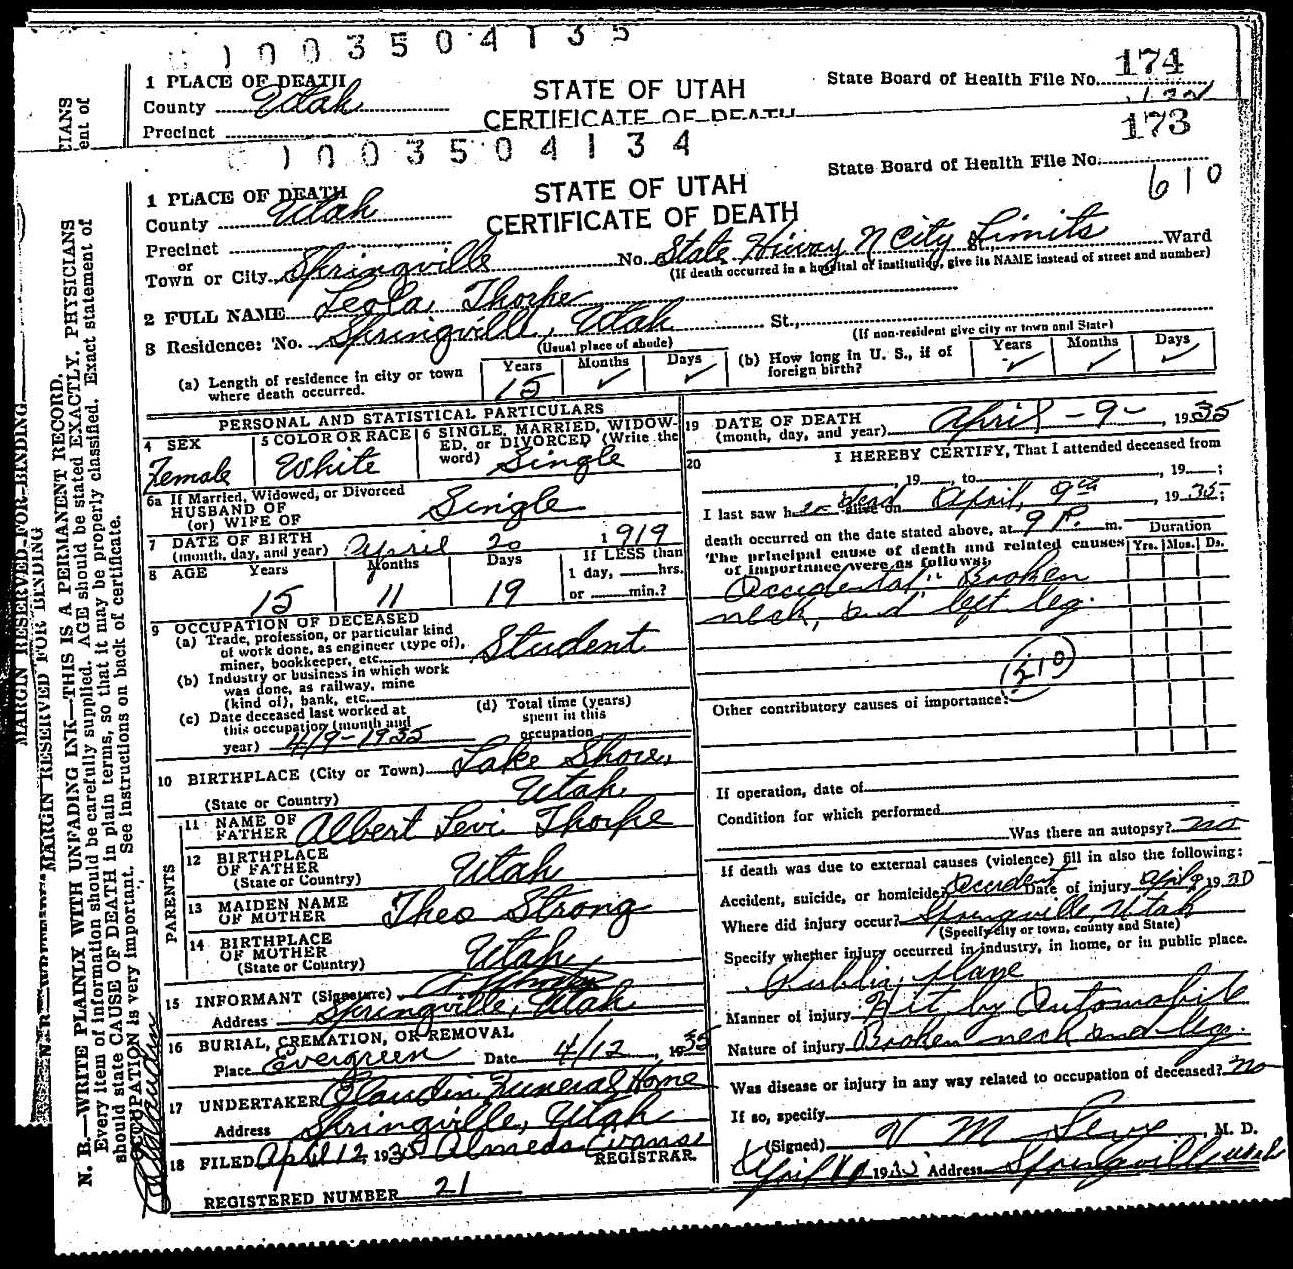 1003504135
1 PLACE OF DEATH
County Utah
Precinct
STATE OF UTAH
CERTIFICATE OF DEATH
State Board of Health File No. 174
1003504134
173
State Board of Health File No.
610
1 PLACE OF DEATH
County Utah
STATE OF UTAH
CERTIFICATE OF DEATH
Precinct
or
Town or City Springville No. State Hiway N City Limits St. Ward
(If death occurred in a hospital of institution, give its NAME instead of street and number)
2 FULL NAME Leola Thorpe
3 Residence: No. Springville, Utah St.,
(Usual place of abode) (If non-resident give city or town and State)
(a) Length of residence in city or town where death occurred. Years 15 Months ✓ Days ✓
(b) How long in U. S., if of foreign birth? Years ✓ Months ✓ Days ✓
PERSONAL AND STATISTICAL PARTICULARS
4 SEX
Female
5 COLOR OR RACE
White
6 SINGLE, MARRIED, WIDOW-
ED, or DIVORCED (Write the
word) Single
6a If Married, Widowed, or Divorced
HUSBAND OF
(or) WIFE OF Single
7 DATE OF BIRTH
(month, day, and year) April 20 1919
8 AGE Years Months Days If LESS than
1 day, hrs.
15 11 19 or min.?
9 OCCUPATION OF DECEASED
(a) Trade, profession, or particular kind
of work done, as engineer (type of),
miner, bookkeeper, etc. Student
(b) Industry or business in which work
was done, as railway, mine
(kind of), bank, etc.
(c) Date deceased last worked at
this occupation (month and
year) 4/9-1935
(d) Total time (years)
spent in this
occupation
10 BIRTHPLACE (City or Town) Lake Shore,
(State or Country) Utah
PARENTS
11 NAME OF
FATHER Albert Levi Thorpe
12 BIRTHPLACE
OF FATHER
(State or Country) Utah
13 MAIDEN NAME
OF MOTHER Theo Strong
14 BIRTHPLACE
OF MOTHER
(State or Country) Utah
15 INFORMANT (Signature)
Address Springville, Utah
16 BURIAL, CREMATION, OR REMOVAL
Place Evergreen Date 4/12, 1935
17 UNDERTAKER Claudin Funeral Home
Address Springville, Utah
18 FILED April 12, 1935 Almeda Evans
REGISTRAR.
REGISTERED NUMBER 21
19 DATE OF DEATH
(month, day, and year) April -9-, 1935
20 I HEREBY CERTIFY, That I attended deceased from
, 19 , to , 19 ;
I last saw her alive on dead April, 9th, 1935;
death occurred on the date stated above, at 9 P. m.
The principal cause of death and related causes
of importance were as follows:
Duration
Yrs. Mos. Ds.
Accidental: Broken
neck, and left leg.
210
Other contributory causes of importance:
If operation, date of
Condition for which performed
Was there an autopsy? no
If death was due to external causes (violence) fill in also the following:
Accident, suicide, or homicide? Accident Date of injury April 9 1930
Where did injury occur? Springville, Utah
(Specify city or town, county and State)
Specify whether injury occurred in industry, in home, or in public place.
Public place
Manner of injury Hit by Automobile
Nature of injury Broken neck and leg.
Was disease or injury in any way related to occupation of deceased? no
If so, specify
(Signed) M. D.
April 1935 Address Springville Utah
MARGIN RESERVED FOR BINDING
MARGIN RESERVED FOR BINDING
N. B.—WRITE PLAINLY WITH UNFADING INK—THIS IS A PERMANENT RECORD.
Every item of information should be carefully supplied. AGE should be stated EXACTLY. PHYSICIANS
should state CAUSE OF DEATH in plain terms, so that it may be properly classified. Exact statement of
OCCUPATION is very important. See instructions on back of certificate.